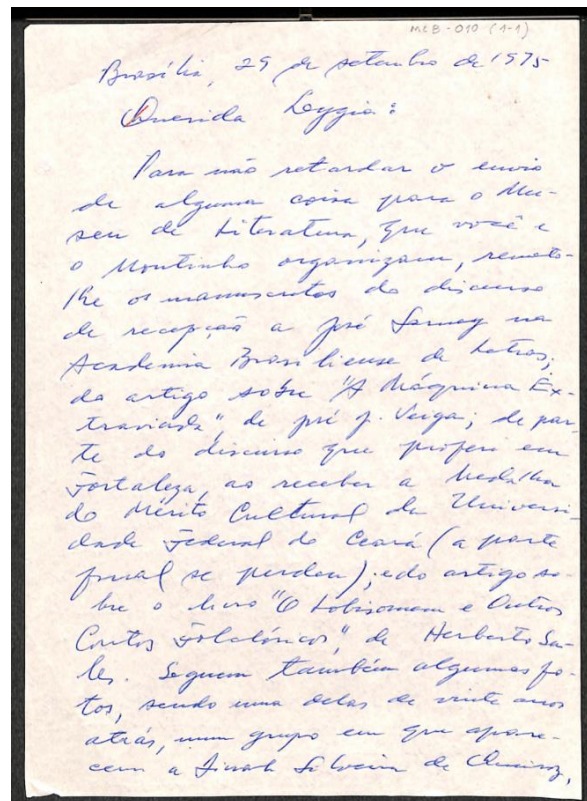 MLB-010 (1-1)
Brasília, 29 de setembro de 1975
Querida Lygia:
Para não retardar o envio
de alguma coisa para o Mu-
seu de Literatura, que você e
o Montinho organizam, remeto-
lhe os manuscritos do discurso
de recepção a José Sarney na
Academia Brasiliense de Letras;
do artigo sôbre "A Máquina Ex-
traviada", de José J. Veiga; de par-
te do discurso que proferi em
Fortaleza, ao receber a Medalha
do Mérito Cultural da Universi-
dade Federal do Ceará (a parte
final se perdeu); e do artigo so-
bre o livro "O Lobisomem e Outros
Contos Folclóricos", de Herberto Sa-
les. Seguem também algumas fo-
tos, sendo uma delas de vinte anos
atrás, num grupo em que apare-
cem a Dinah Silveira de Queiroz,